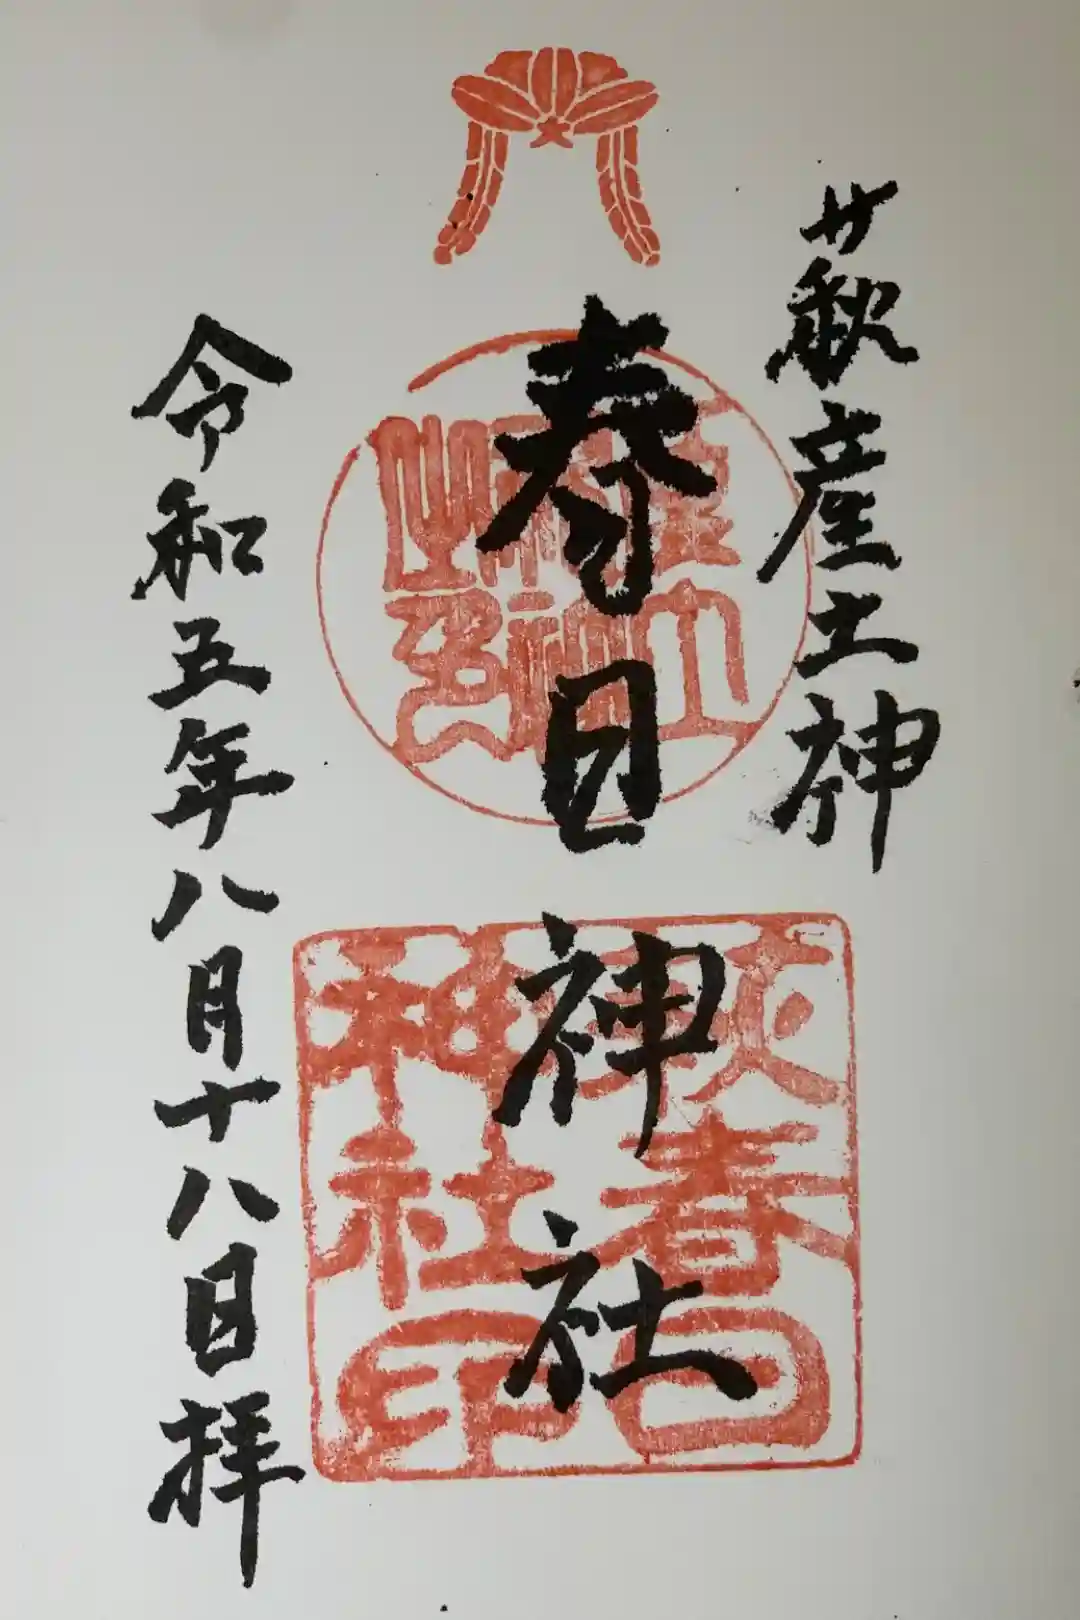 萩産土神
春日神社
令和五年八月十八日拝
萩春日神社印